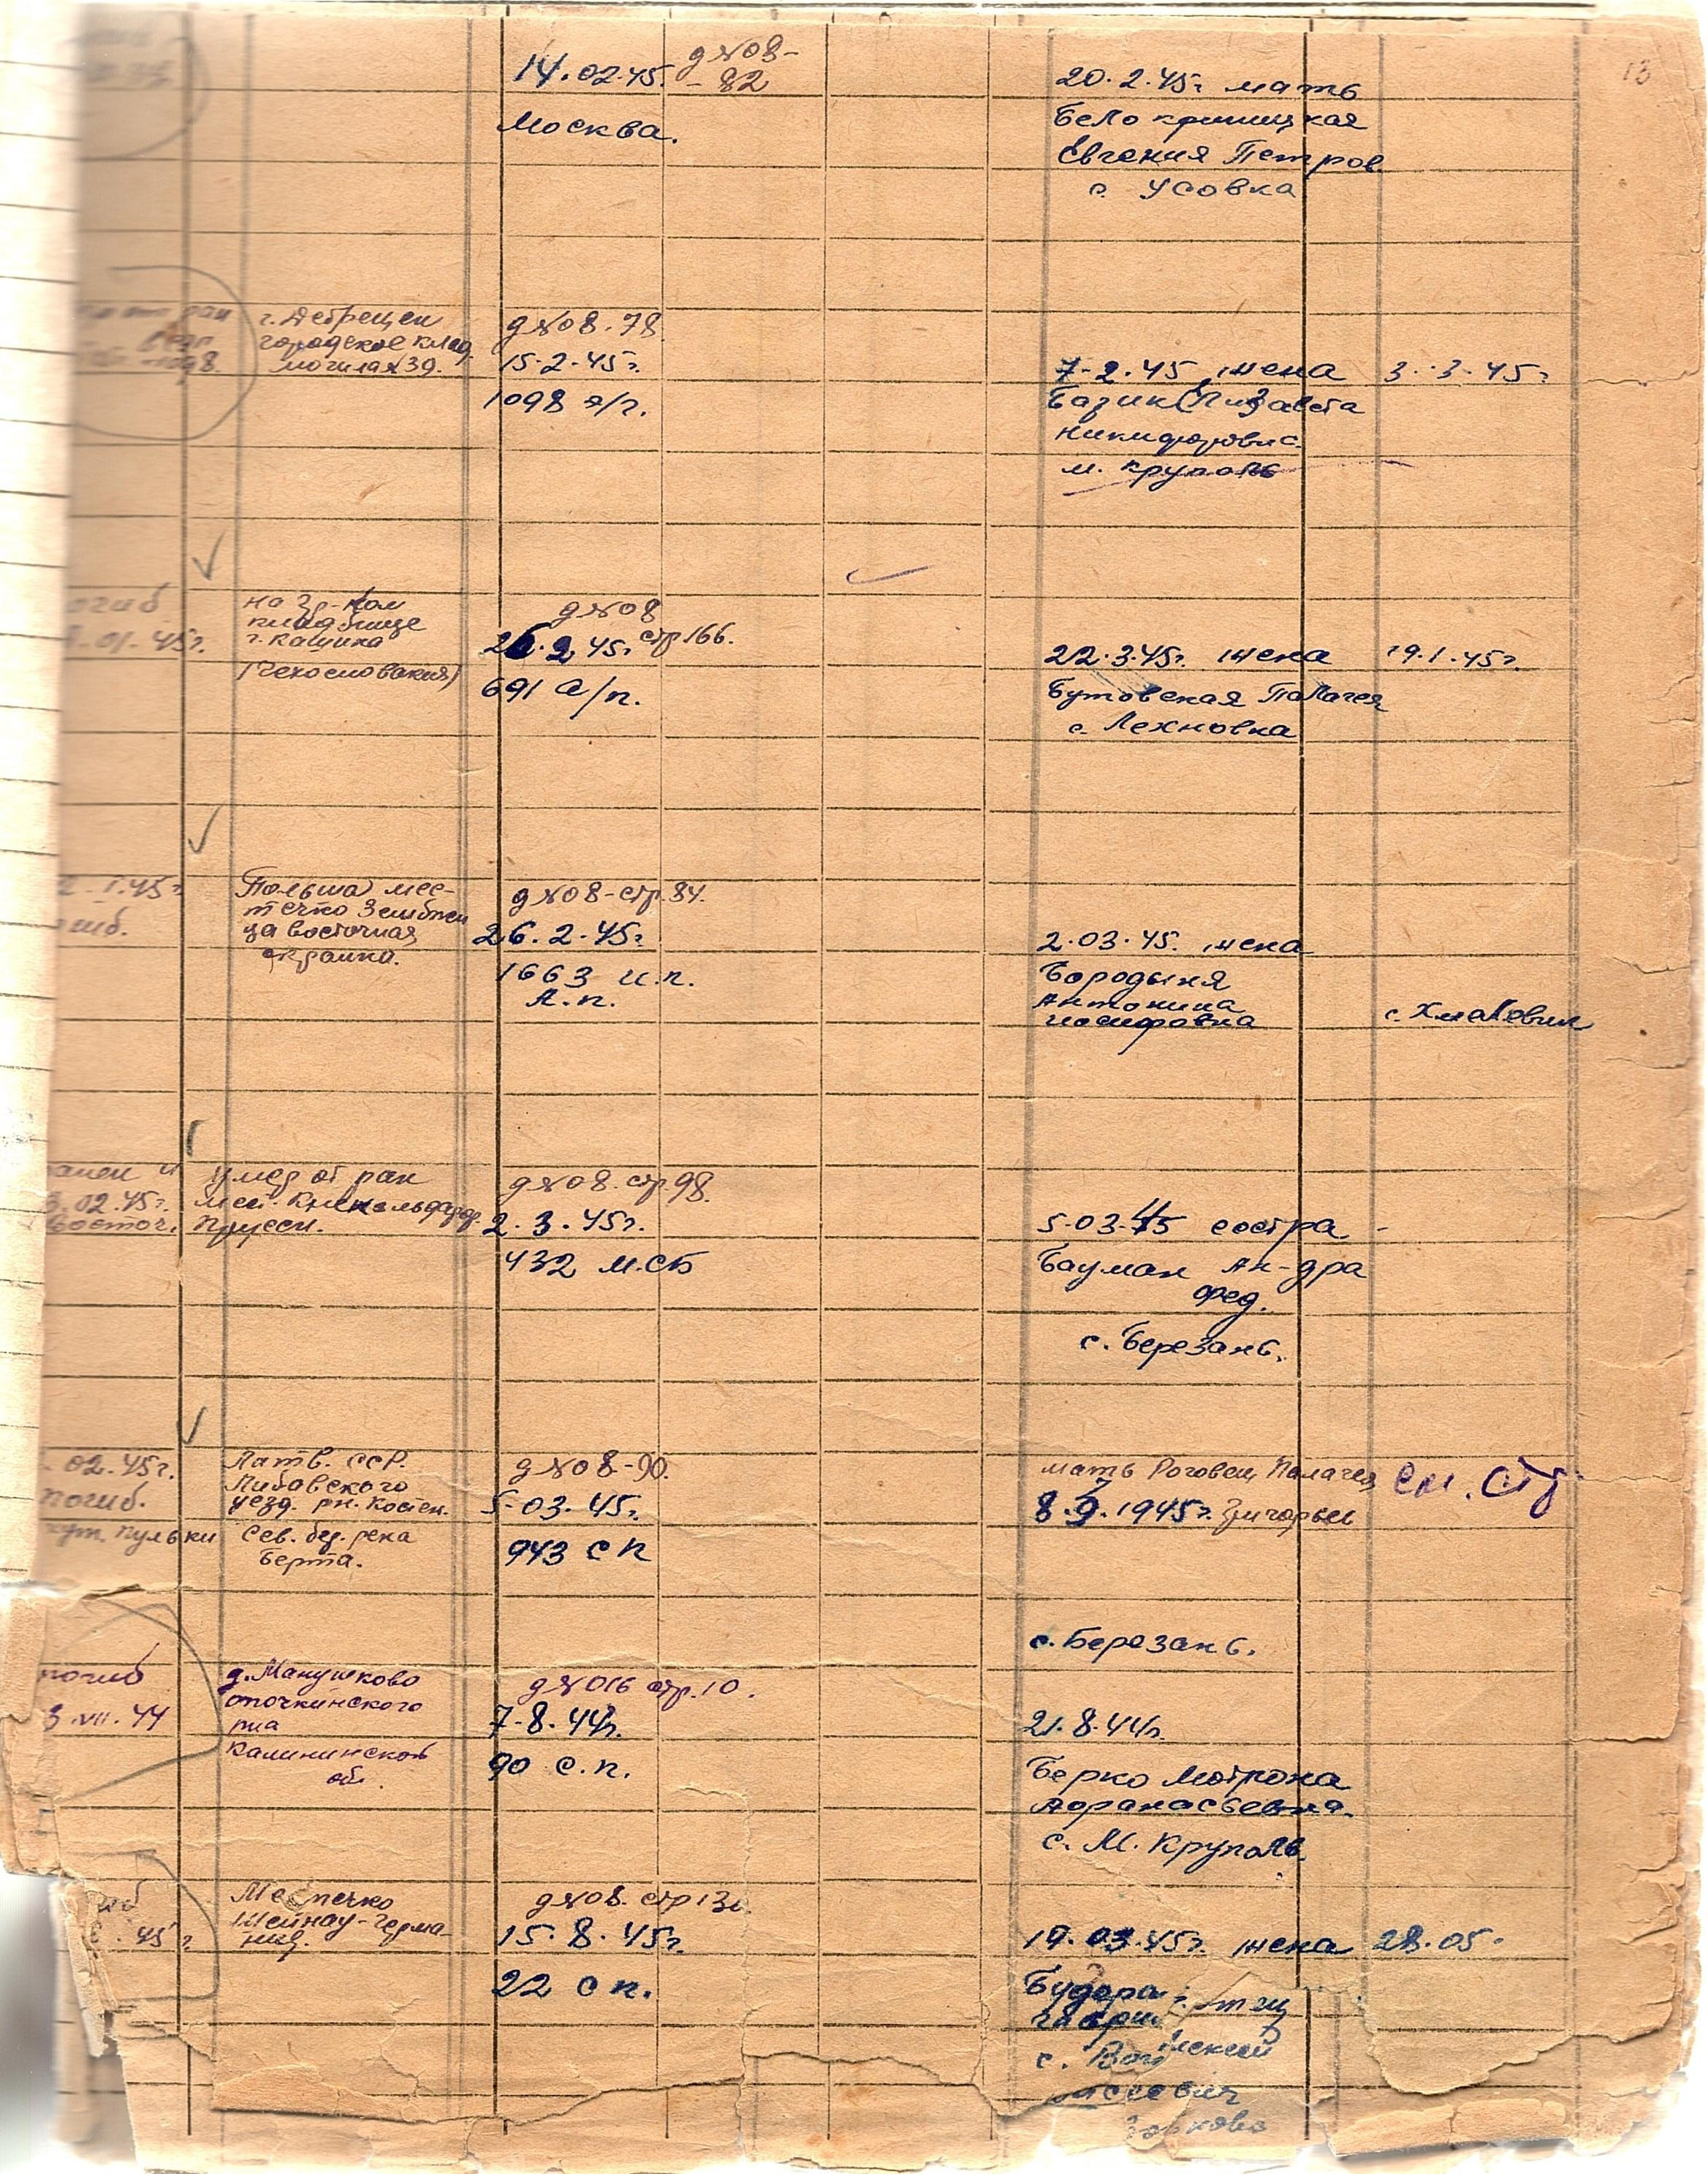 13
14.02.45. д №08-
- 82
Москва.
20.2.45г мать
Белокриницкая
Евгения Петров.
с. Усовка
от ран
г. Дебрецен
городское клад.
могила №39.
д №08.78
15.2.45г.
1098 з/п.
7-2.45 жена 3.3.45г
Базик Елизавета
Никифоровна
м. Круполь
погиб
.01.45г.
на гр-ком
кладбище
г. Кашика
(Чехословакия)
д №08
26.2.45г стр 166.
691 а/п.
22.3.45г. жена 19.1.45г.
Бутовская Палагея
с. Лехновка
2.1.45г
Польша мес-
течко
ца восточная
окраина.
д №08-стр.84.
26.2.45г
1663 и.п.
А.п.
2.03.45. жена
Бородыня
Антонина
Иосифовна с. Хмелевик
ранен и
умер от ран
3.02.45г.
Восточ. Пруссия.
д №08.стр.98.
2.3.45г.
432 м.сб
5-03-45 сестра -
Бауман Ал-дра
Фед.
с. Березань.
.02.45г.
погиб.
хут. Пульки
Латв. ССР.
Либавского
уезд. рн.
Сев. бер. река
Берта.
д №08-90.
5-03.45г.
943 сп
мать Роговец Палагея см. стр
8.9.1945г. Григорьев
с. Березань.
погиб
3.VII.44
д. Манушково
опочкинского
р-на
Калининской
обл.
д №016 стр.10.
7-8.44г.
90 с.п.
21.8.44г.
Берко Мотрона
Афанасьевна.
с. М. Круполь
45г
Местечко
Шейнау-Герма-
ния.
д №08. стр 13
15.8.45г.
22 сп.
19.03.45г. жена 28.05.